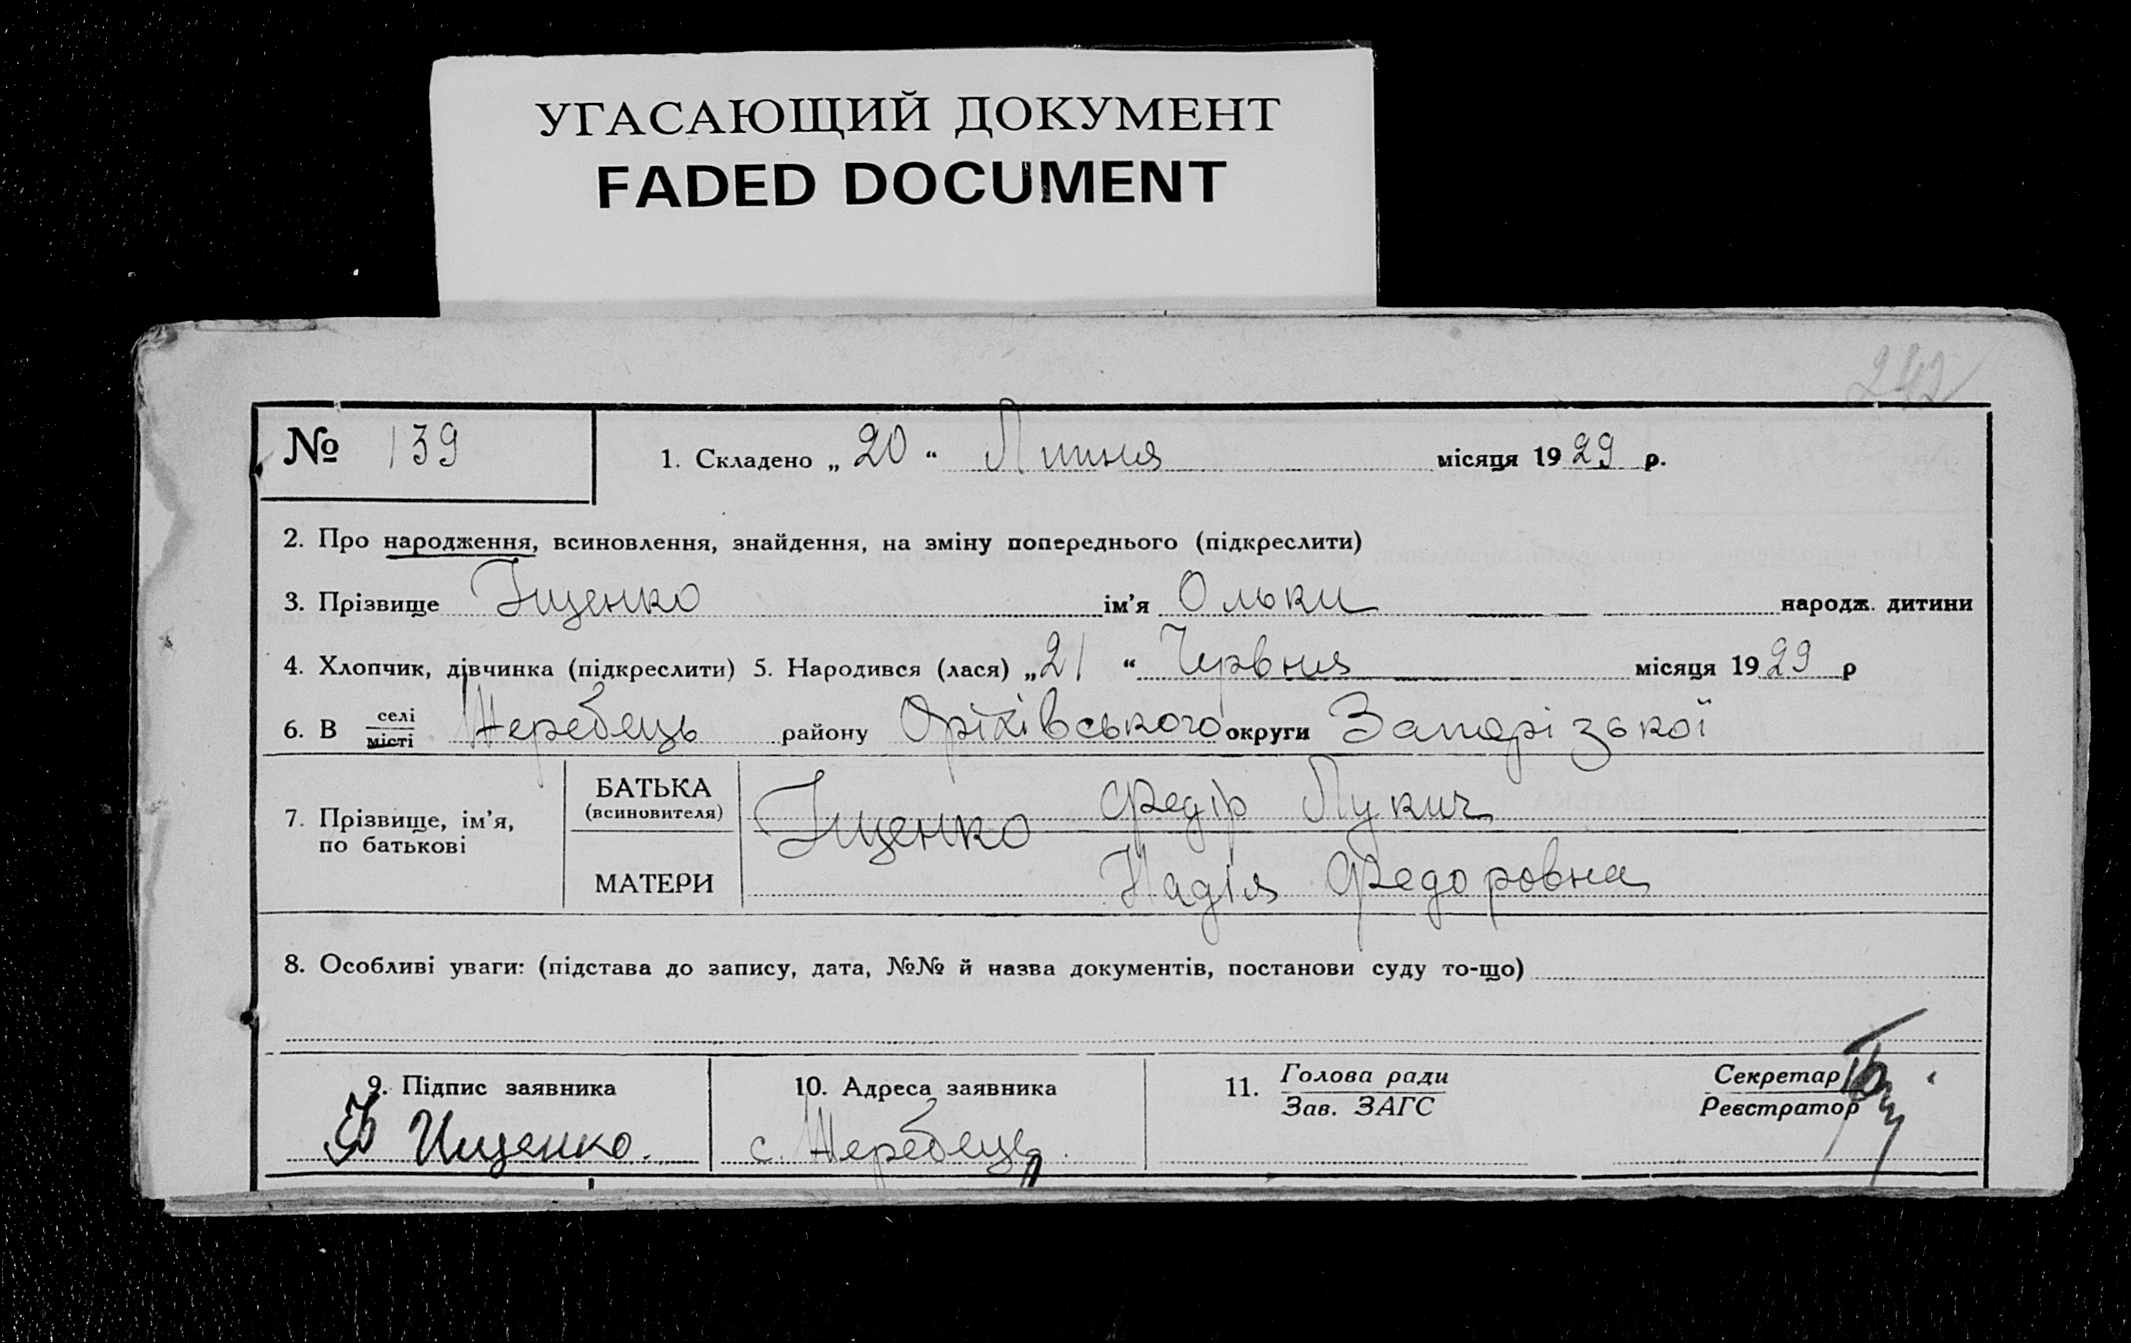 УГАСАЮЩИЙ ДОКУМЕНТ
FADED DOCUMENT
242
№ 139 1. Складено „ 20 “ Липня місяця 1929 р.
2. Про народження, всиновлення, знайдення, на зміну попереднього (підкреслити)
3. Прізвище Іщенко ім’я Ольки народж. дитини
4. Хлопчик, дівчинка (підкреслити) 5. Народився (лася) „21 “ Червня місяця 1929 р
6. В селі місті Жеребець району Оріхівського округи Запорізької
7. Прізвище, ім’я, по батькові
БАТЬКА (всиновителя) Іщенко Федір Лукич
МАТЕРИ Надія Федоровна
8. Особливі уваги: (підстава до запису, дата, №№ й назва документів, постанови суду то-що)
9. Підпис заявника 10. Адреса заявника 11. Голова ради Зав. ЗАГС Секретар Реєстратор
Ф Ищенко. с. Жеребець.